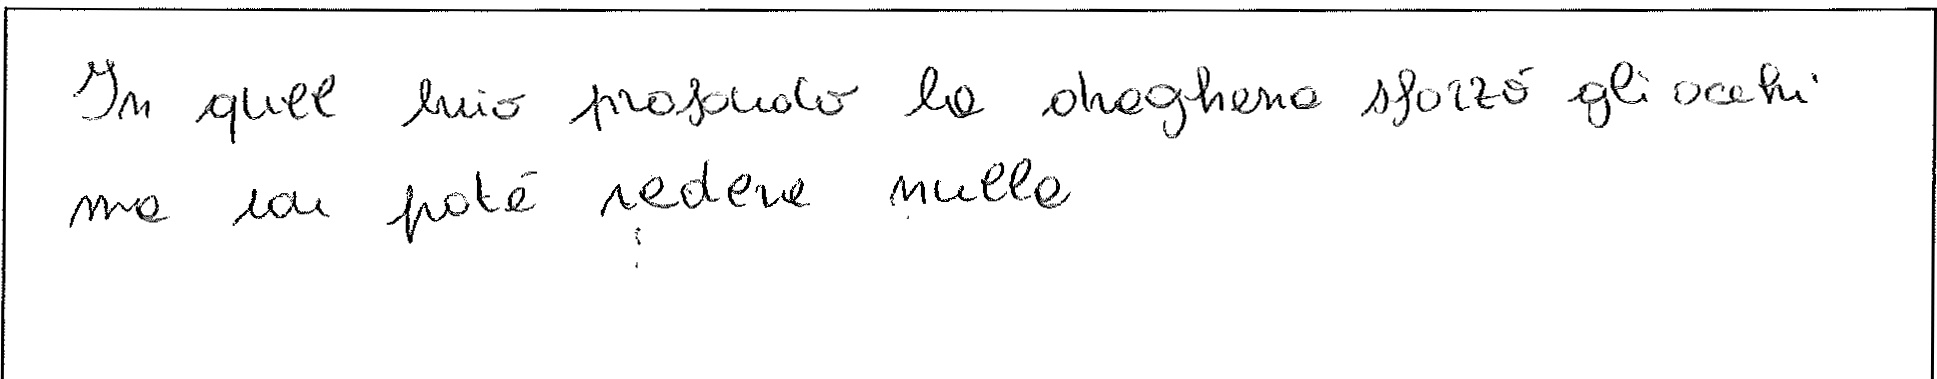 In quel buio profondo la draghena sforzò gli occhi
ma non poté vedere nulla